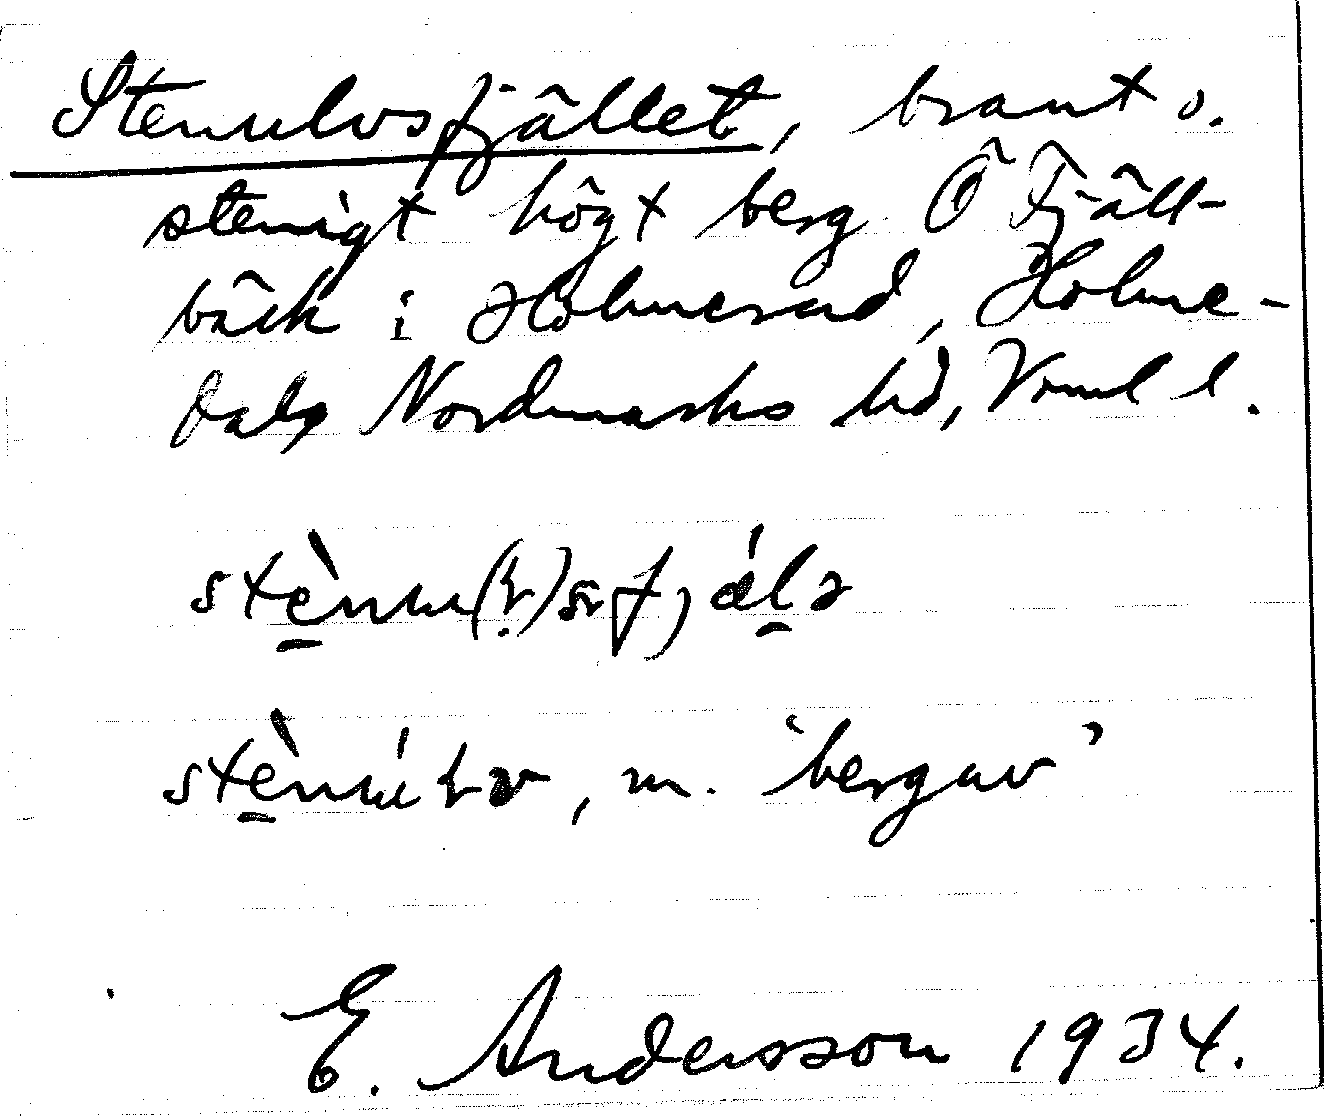 Stenulvsfjället, brant o.
stenigt högt berg Ö Fjäll-
bäck i Holmerud, Holme-
dals Nordmarks hd, Vrml l.
, m. 'berguv'
E. Andersson 1934.